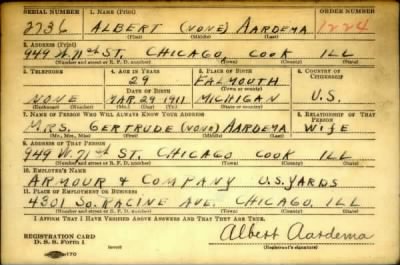 SERIAL NUMBER 1. NAME (Print) ORDER NUMBER
2736 ALBERT (NONE) AARDEMA 1224
(First) (Middle) (Last)
2. ADDRESS (Print)
949 W 71st ST, CHICAGO COOK ILL
(Number and street or R. F. D. number) (Town) (County) (State)
3. TELEPHONE 4. AGE IN YEARS 5. PLACE OF BIRTH 6. COUNTRY OF CITIZENSHIP
29 FALMOUTH
DATE OF BIRTH (Town or county)
NONE MAR. 29 1911 MICHIGAN U.S.
(Exchange) (Number) (Mo.) (Day) (Yr.) (State or country)
7. NAME OF PERSON WHO WILL ALWAYS KNOW YOUR ADDRESS 8. RELATIONSHIP OF THAT PERSON
MRS. GERTRUDE (NONE) AARDEMA WIFE
(Mr., Mrs., Miss) (First) (Middle) (Last)
9. ADDRESS OF THAT PERSON
949 W. 71st ST CHICAGO COOK ILL
(Number and street or R. F. D. number) (Town) (County) (State)
10. EMPLOYER'S NAME
ARMOUR & COMPANY U.S. YARDS
11. PLACE OF EMPLOYMENT OR BUSINESS
4301 SO. RACINE AVE. CHICAGO, ILL
(Number and street or R. F. D. number) (Town) (County) (State)
I AFFIRM THAT I HAVE VERIFIED ABOVE ANSWERS AND THAT THEY ARE TRUE.
REGISTRATION CARD
D. S. S. Form 1 (over) Albert Aardema
(Registrant's signature)